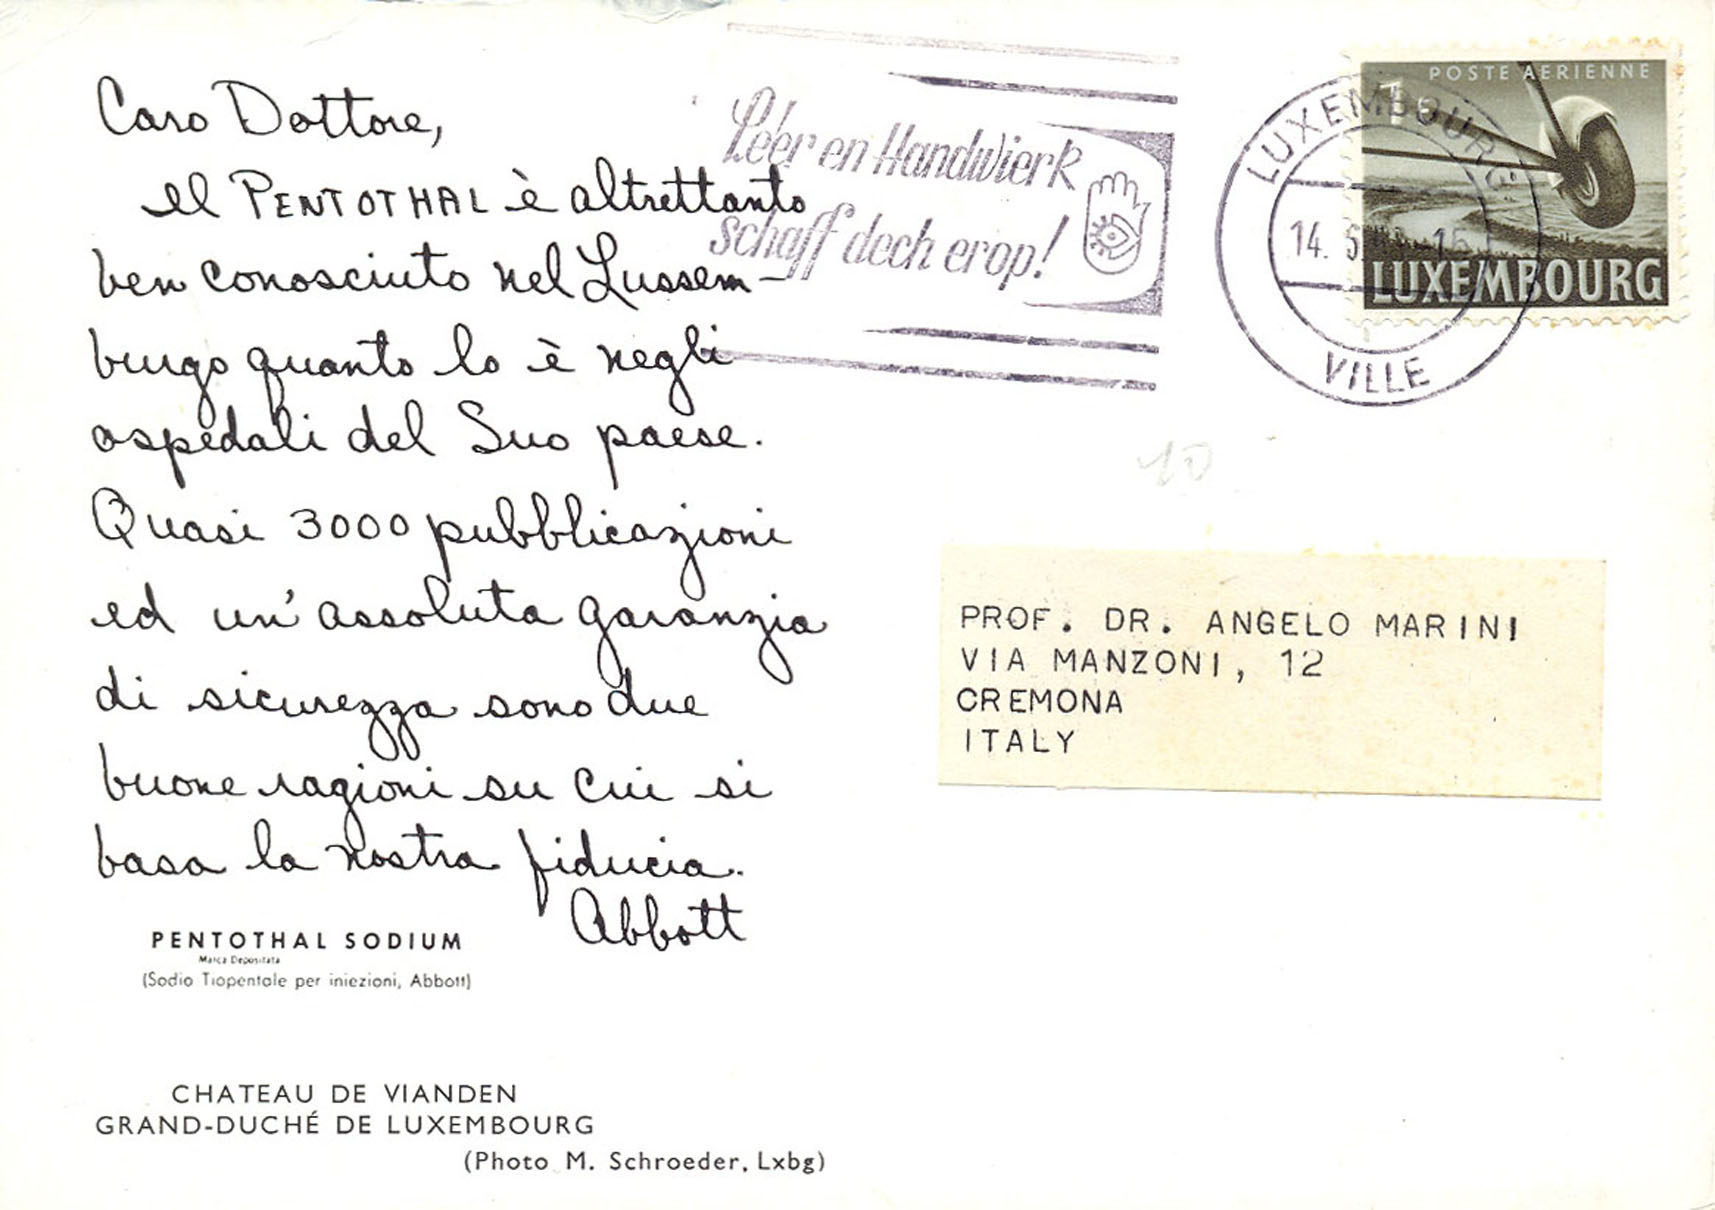 Caro Dottore,
il PENTOTHAL è altrettanto
ben conosciuto nel Lussem-
burgo quanto lo è negli
ospedali del Suo paese.
Quasi 3000 pubblicazioni
ed un' assoluta garanzia
di sicurezza sono due
buone ragioni su cui si
basa la nostra fiducia.
Abbott
PENTOTHAL SODIUM
Marca Depositata
(Sodio Tiopentale per iniezioni, Abbott)
CHATEAU DE VIANDEN
GRAND-DUCHÉ DE LUXEMBOURG
(Photo M. Schroeder, Lxbg)
Léer en Handwierk
schaff dech erop!
LUXEMBOURG
14.
15
VILLE
POSTE AERIENNE
1F
LUXEMBOURG
10
PROF. DR. ANGELO MARINI
VIA MANZONI, 12
CREMONA
ITALY